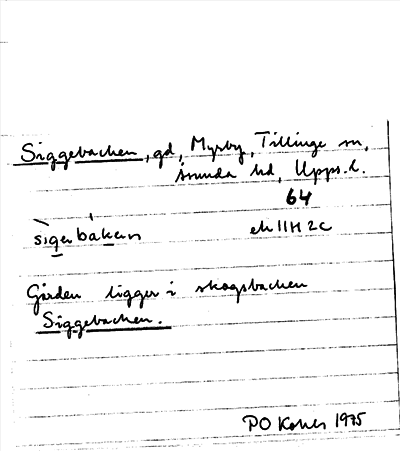 Siggebacken, gd, Myrby, Tillinge sn,
Åsunda hd, Upps. l.
64
sigerbakän ek 11H 2c
Gården ligger i skogsbacken
Siggebacken.
PO 1975